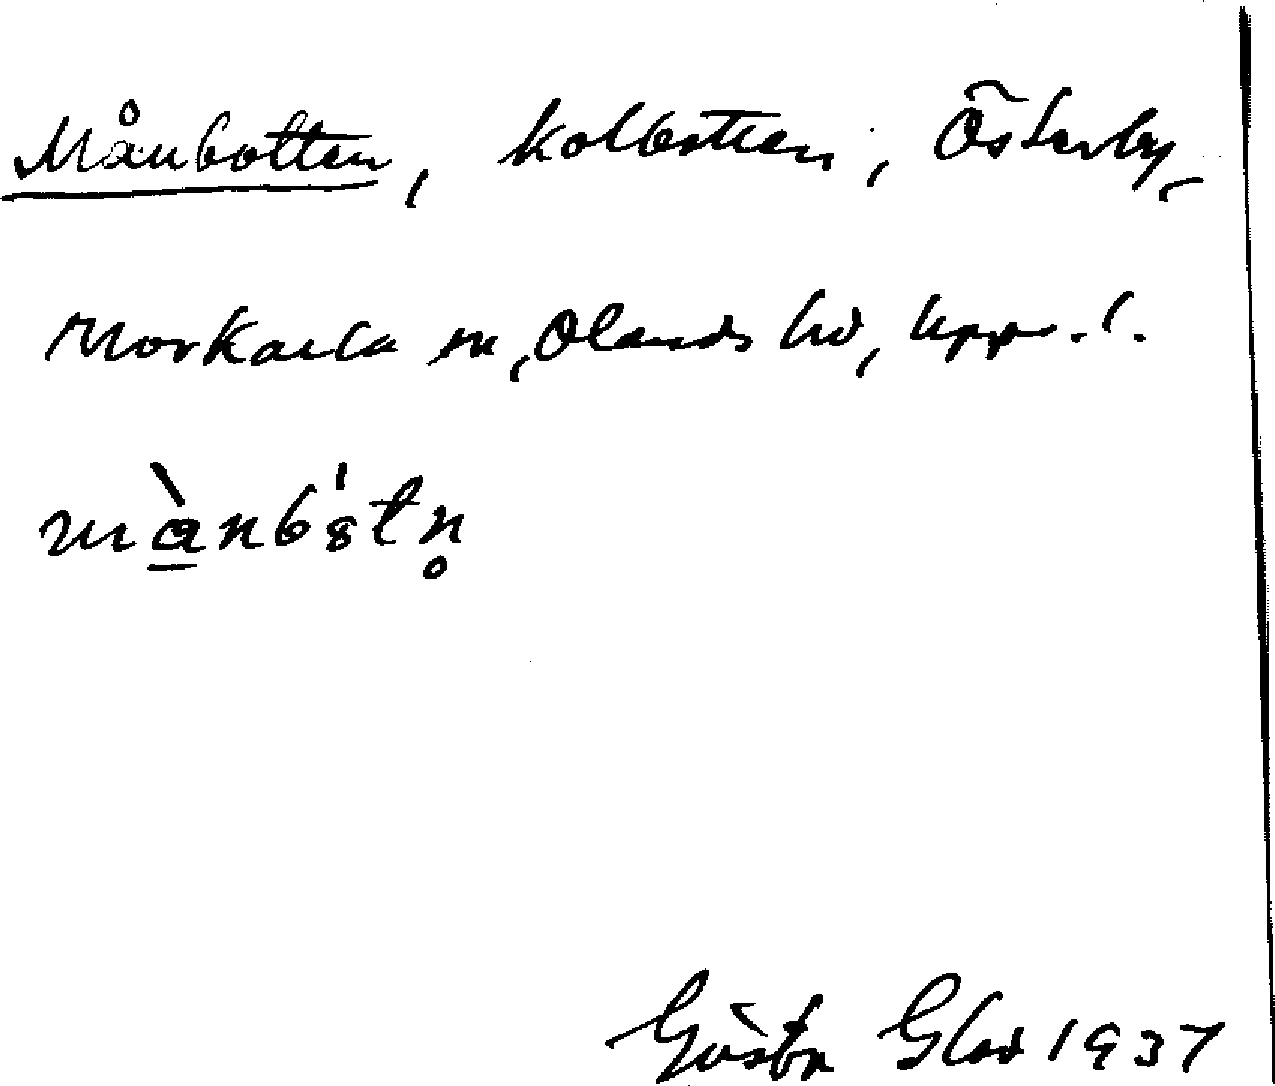 Månbotten, kolbotten, Österby,
Morkarla sn, Olands hd, Upps. l.
mànb8́tn̥
Gösta Glad 1937